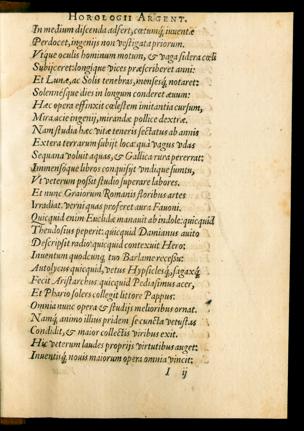 HOROLOGII ARGENT.
In medium discenda adfert, cœtumq́; iuuentæ
Perdocet, ingenijs non vestigata priorum.
Vtque oculis hominum motum, & vaga sidera cœli
Subijceret: longique vices præscriberet anni:
Et Lunæ, ac Solis tenebras, menseſq́; notaret:
Solennéſque dies in longum conderet æuum:
Hæc opera effinxit cœleſtem imitantia cursum,
Mira acie ingenij, mirandæ pollice dextræ.
Nam studia hæc vitæ teneris sectatus ab annis
Extera terrarum subijt loca: quà vagus vdas
Sequana voluit aquas, & Gallica rura pererrat:
Immensósque libros conquisyt vndique sumtu,
Vt veterum possit studio superare labores.
Et nunc Graiorum Romanis floribus artes
Irradiat, verni quas proferet aura Fauoni.
Quicquid enim Euclidæ manauit ab indole: quicquid
Theodosius peperit: quicquid Damianus auito
Descripsit radio: quicquid contexuit Hero;
Inuentum quodcunq́; tuo Barlame recessu:
Autolycus quicquid, vetus Hypsiclesq́;, sagaxq́;
Fecit Aristarchus: quicquid Pediasimus acer,
Et Phario solers collegit littore Pappus:
Omnia nunc opera & studijs melioribus ornat.
Namq́; animo illius pridem se cuncta vetustas
Condidit, & maior collectis viribus exit.
Hic veterum laudes proprijs virtutibus auget:
Inuentisq́; nouis maiorum opera omnia vincit:
I ij